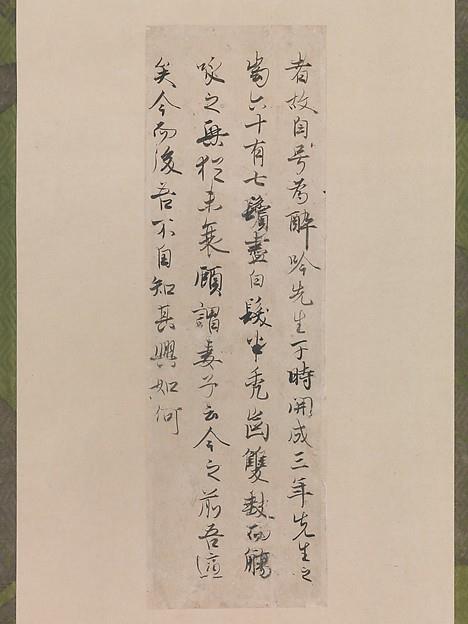 者故自号為醉吟先生于時開成三年先生之
歯六十有七鬢盡白髮半禿歯雙缺而觴
咏之興猶未衰顧謂妻子云今之前吾適
矣今而後吾不自知其興如何